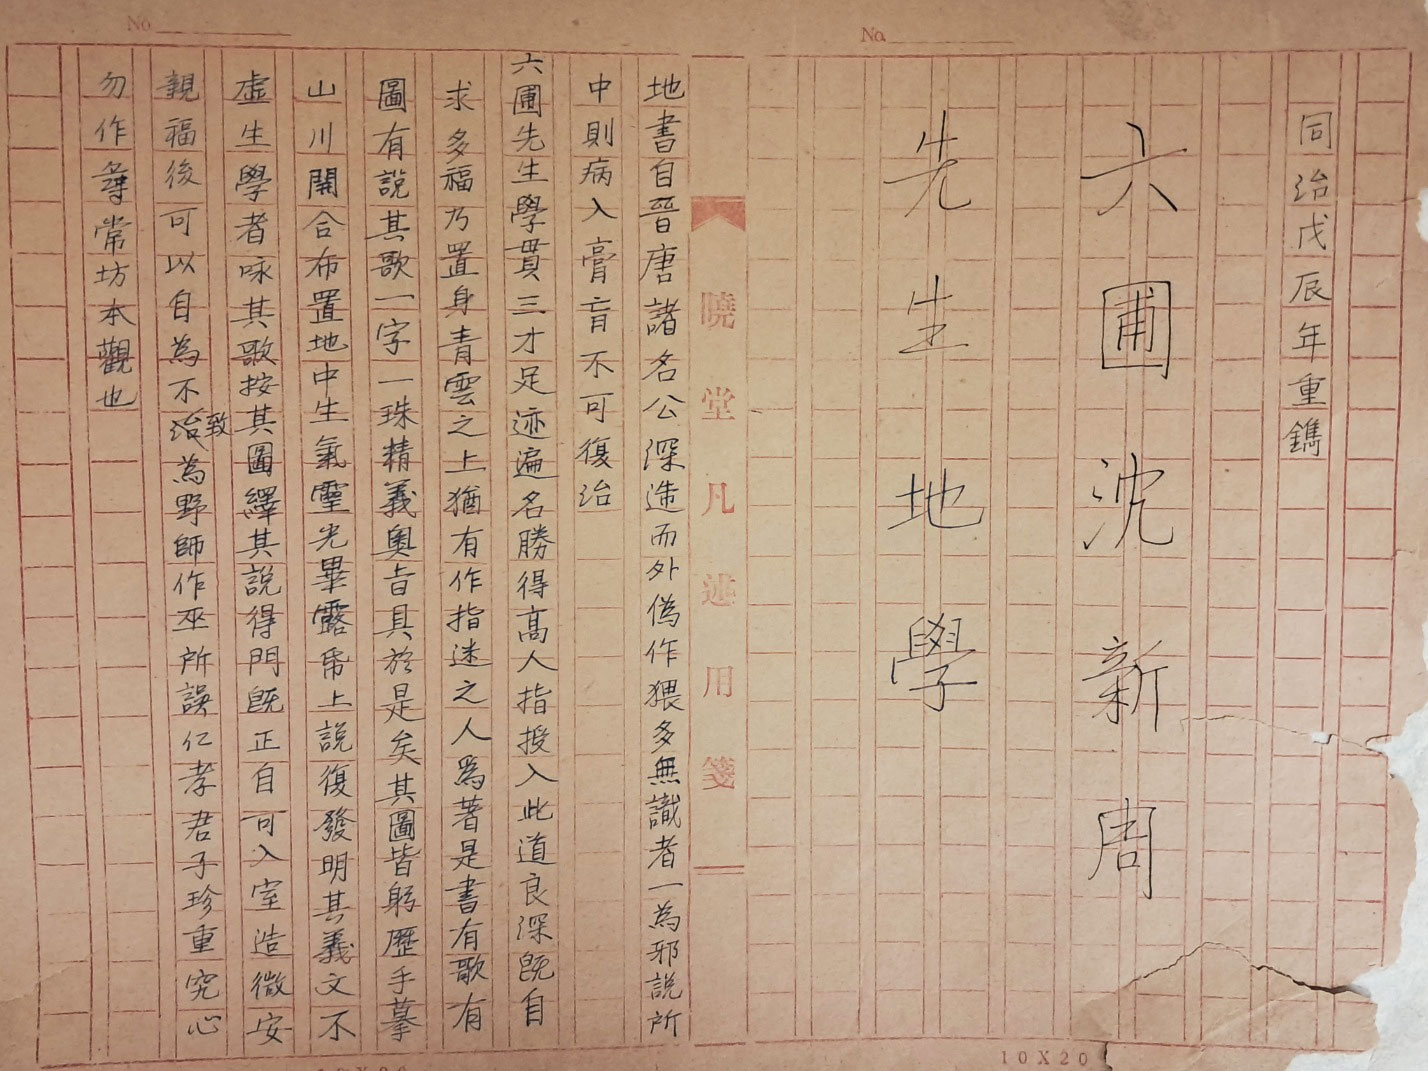 No.
No.
同治戊辰年重鐫
六圃沈新周
先生地學
曉堂凡述用箋
地書自晉唐諸名公深造而外偽作猥多無識者一為邪說所
中則病入膏肓不可復治
六圃先生學貫三才足迹遍名勝得高人指授入此道良深既自
求多福乃置身青雲之上猶有作指迷之人為著是書有歌有
圖有說其歌一字一珠精義奧旨具於是矣其圖皆躬歷手摹
山川開合布置地中生氣靈光畢露帋上說復發明其義文不
虛生學者咏其歌按其圖繹其說得門既正自可入室造微安
親福後可以自為不治致為野師作巫所誤仁孝君子珍重究心
勿作尋常坊本觀也
10X20
10X20